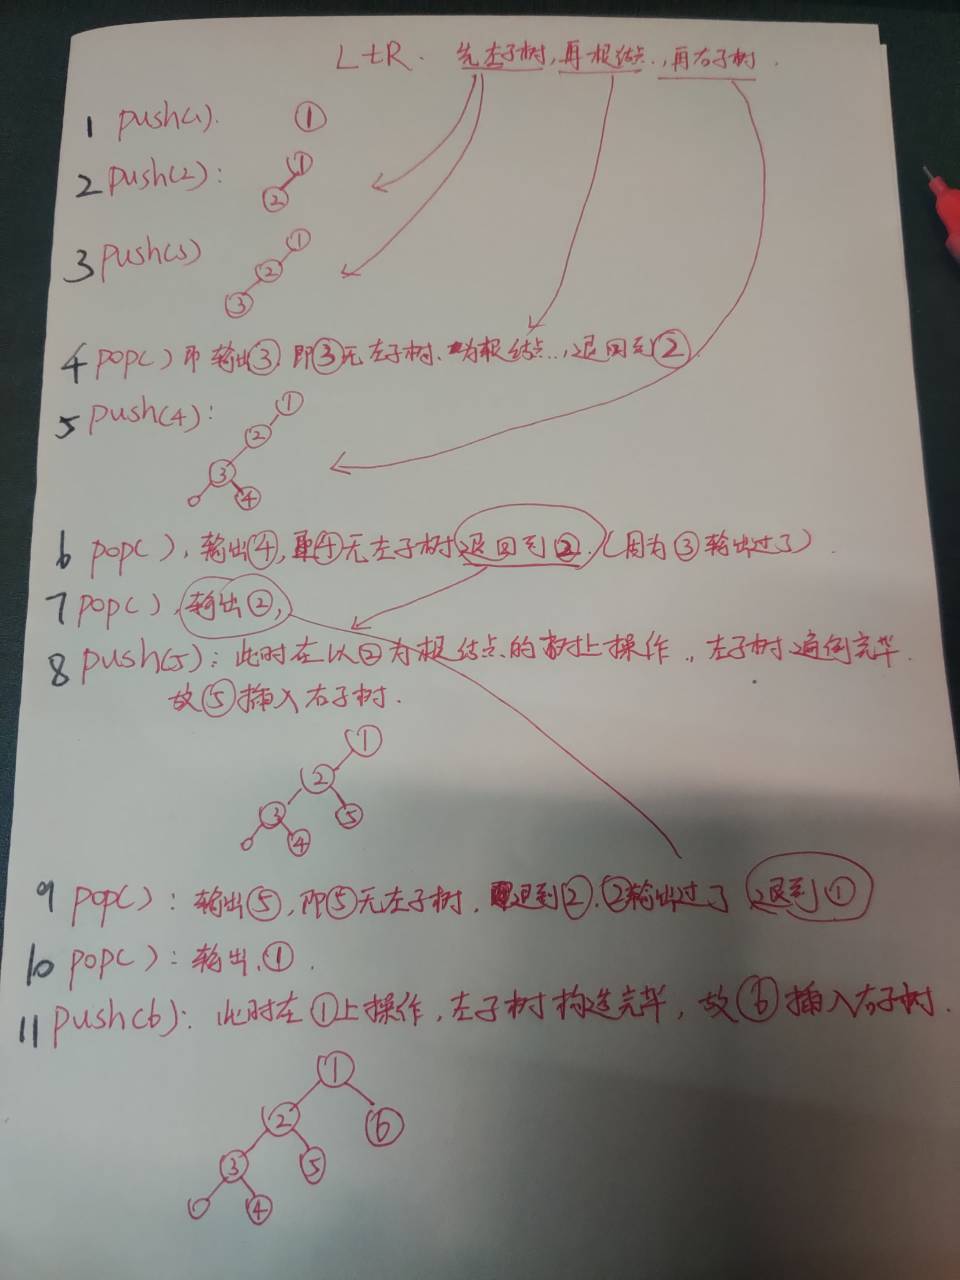 LtR. 先左子树,再根结点,再右子树.
1 push(1). ①
2 push(2): ① ②
3 push(3) ① ② ③
4 pop() 即输出③,即③无左子树.为根结点..,退回到②
5 push(4): ① ② ③ ④
6 pop(), 输出④, 即④无左子树退回到②.(因为③输出过了)
7 pop(), 输出②,
8 push(5): 此时在以②为根结点的树上操作., 左子树遍例完毕.
故⑤插入右子树.
①
②
③ ⑤
④
9 pop(): 输出⑤, 即⑤无左子树, 退到②.②输出过了 退到①
10 pop(): 输出.①.
11 push(6): 此时在①上操作, 左子树构造完毕, 故⑥插入右子树.
①
② ⑥
③ ⑤
④